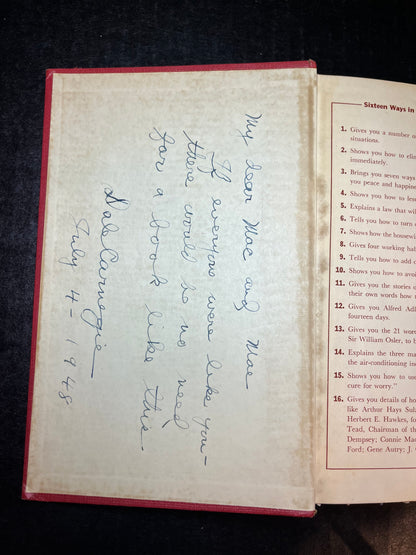 My dear Mac and Mae
If everyone were like you-
there would be no need
for a book like this.
Dale Carnegie-
July 4- 1948
Sixteen Ways in
1. Gives you a number o
situations.
2. Shows you how to eli
immediately.
3. Brings you seven ways
you peace and happines
4. Shows you how to less
5. Explains a law that wi
6. Tells you how to turn c
7. Shows how the housewi
8. Gives four working hal
9. Tells you how to add o
10. Shows you how to avoi
11. Gives you the stories o
their own words how
12. Gives you Alfred Adl
fourteen days.
13. Gives you the 21 wor
Sir William Osler, to b
14. Explains the three ma
the air-conditioning in
15. Shows you how to use
cure for worry."
16. Gives you details of ho
like Arthur Hays Sul
Herbert E. Hawkes, fo
Tead, Chairman of th
Dempsey; Connie Ma
Ford; Gene Autry; J.